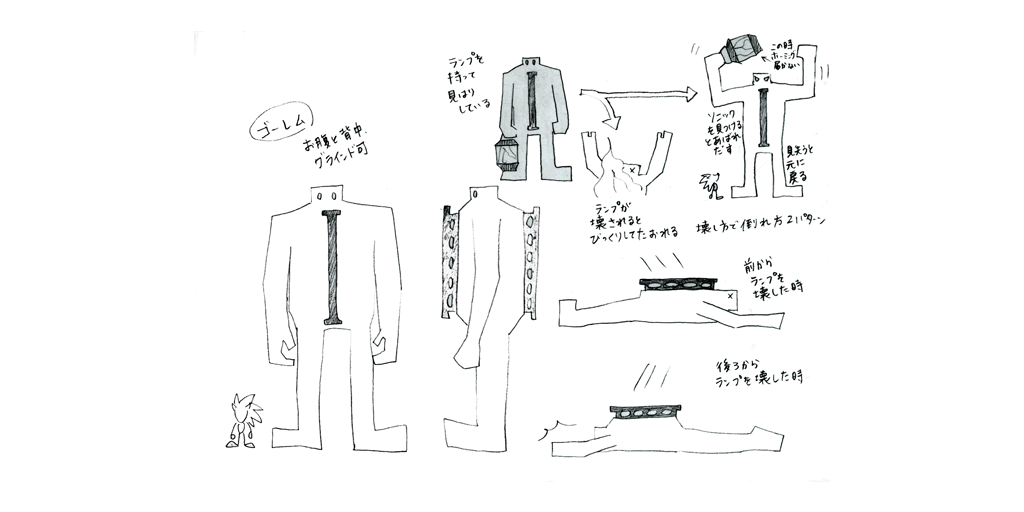 ゴーレム
お腹と背中、
グラインド可
ランプを
持って
見はり
している
この時
ホーミング
届かない
ソニック
を見つける
とあばれ
だす
見失うと
元に
戻る
ランプが
壊されると
びっくりしてたおれる
壊し方で倒れ方2パターン
前から
ランプを
壊した時
後ろから
ランプを壊した時